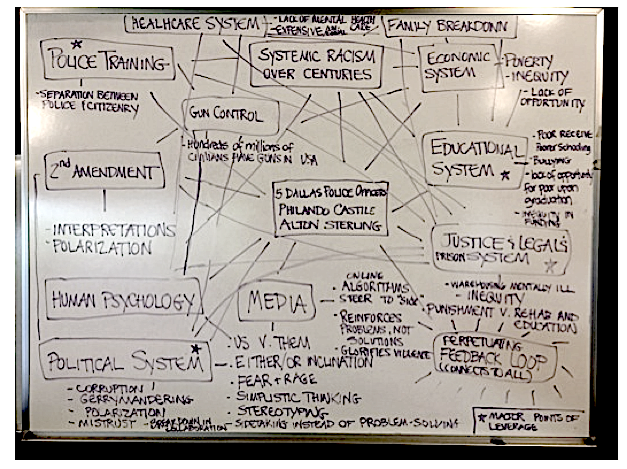 HEALHCARE SYSTEM
- LACK OF MENTAL HEALTH
- EXPENSIVE
FAMILY BREAKDOWN
POLICE TRAINING
- SEPARATION BETWEEN
POLICE / CITIZENRY
SYSTEMIC RACISM
OVER CENTURIES
ECONOMIC
SYSTEM
- POVERTY
- INEQUITY
- LACK OF
OPPORTUNITY
GUN CONTROL
- Hundreds of millions of
civilians HAVE GUNS IN USA
2nd AMENDMENT
- INTERPRETATIONS
- POLARIZATION
5 DALLAS POLICE OFFICERS
PHILANDO CASTILE
ALTON STERLING
EDUCATIONAL
SYSTEM *
- POOR RECEIVE
Poorer Schooling
- BULLYING
- lack of opportunity
for poor upon
graduation
- INEQUITY IN
FUNDING
JUSTICE & LEGAL &
PRISON SYSTEM *
- WAREHOUSING MENTALLY ILL
- INEQUITY
- PUNISHMENT V. REHAB AND
EDUCATION
HUMAN PSYCHOLOGY
MEDIA
- ONLINE
ALGORITHMS
STEER TO "SIDE"
- REINFORCES
PROBLEMS, NOT
SOLUTIONS
- GLORIFIES VIOLENCE
- US V. THEM
- EITHER/OR INCLINATION
- FEAR + RAGE
- SIMPLISTIC THINKING
- STEREOTYPING
- SIDETAKING INSTEAD OF PROBLEM-SOLVING
POLITICAL SYSTEM *
- CORRUPTION
- GERRYMANDERING
- POLARIZATION
- MISTRUST - BREAKDOWN IN
COLLABORATION
PERPETUATING
FEEDBACK LOOP
(CONNECTS TO ALL)
* MAJOR POINTS OF
LEVERAGE